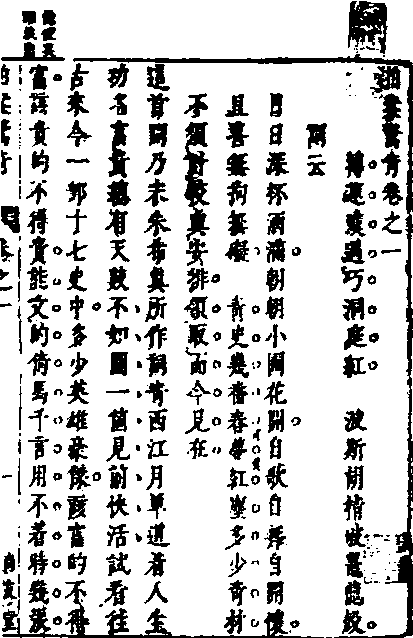 拍案驚奇卷之一
轉運漢遇巧洞庭紅 波斯胡指破鼉龍殼
詞云
日日深杯酒滿朝朝小圃花開自歌自舞自開懷
且喜無拘無礙 青史幾番春夢紅塵多少奇材
不須計較與安排領取而今見在
這首詞乃宋朱希真所作詞寄西江月單道着人生
功名富貴總有天數不如圖一個見前快活試看往
古來今一部十七史中多少英雄豪傑該富的不得
富該貴的不得貴能文的倚馬千言用不着時幾張
拍案驚奇 卷之一 一 尚友堂